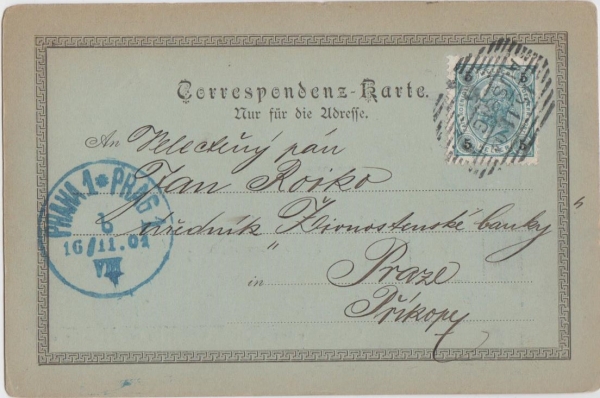 Correspondenz-Karte.
Nur für die Adresse.
An Velectěný pán
Jan Roiko
úředník „Živnostenské banky“
in Praze
Příkopy
PRAHA 1 * PRAG 1
6
16/11.01
VIII
5 5
5 5